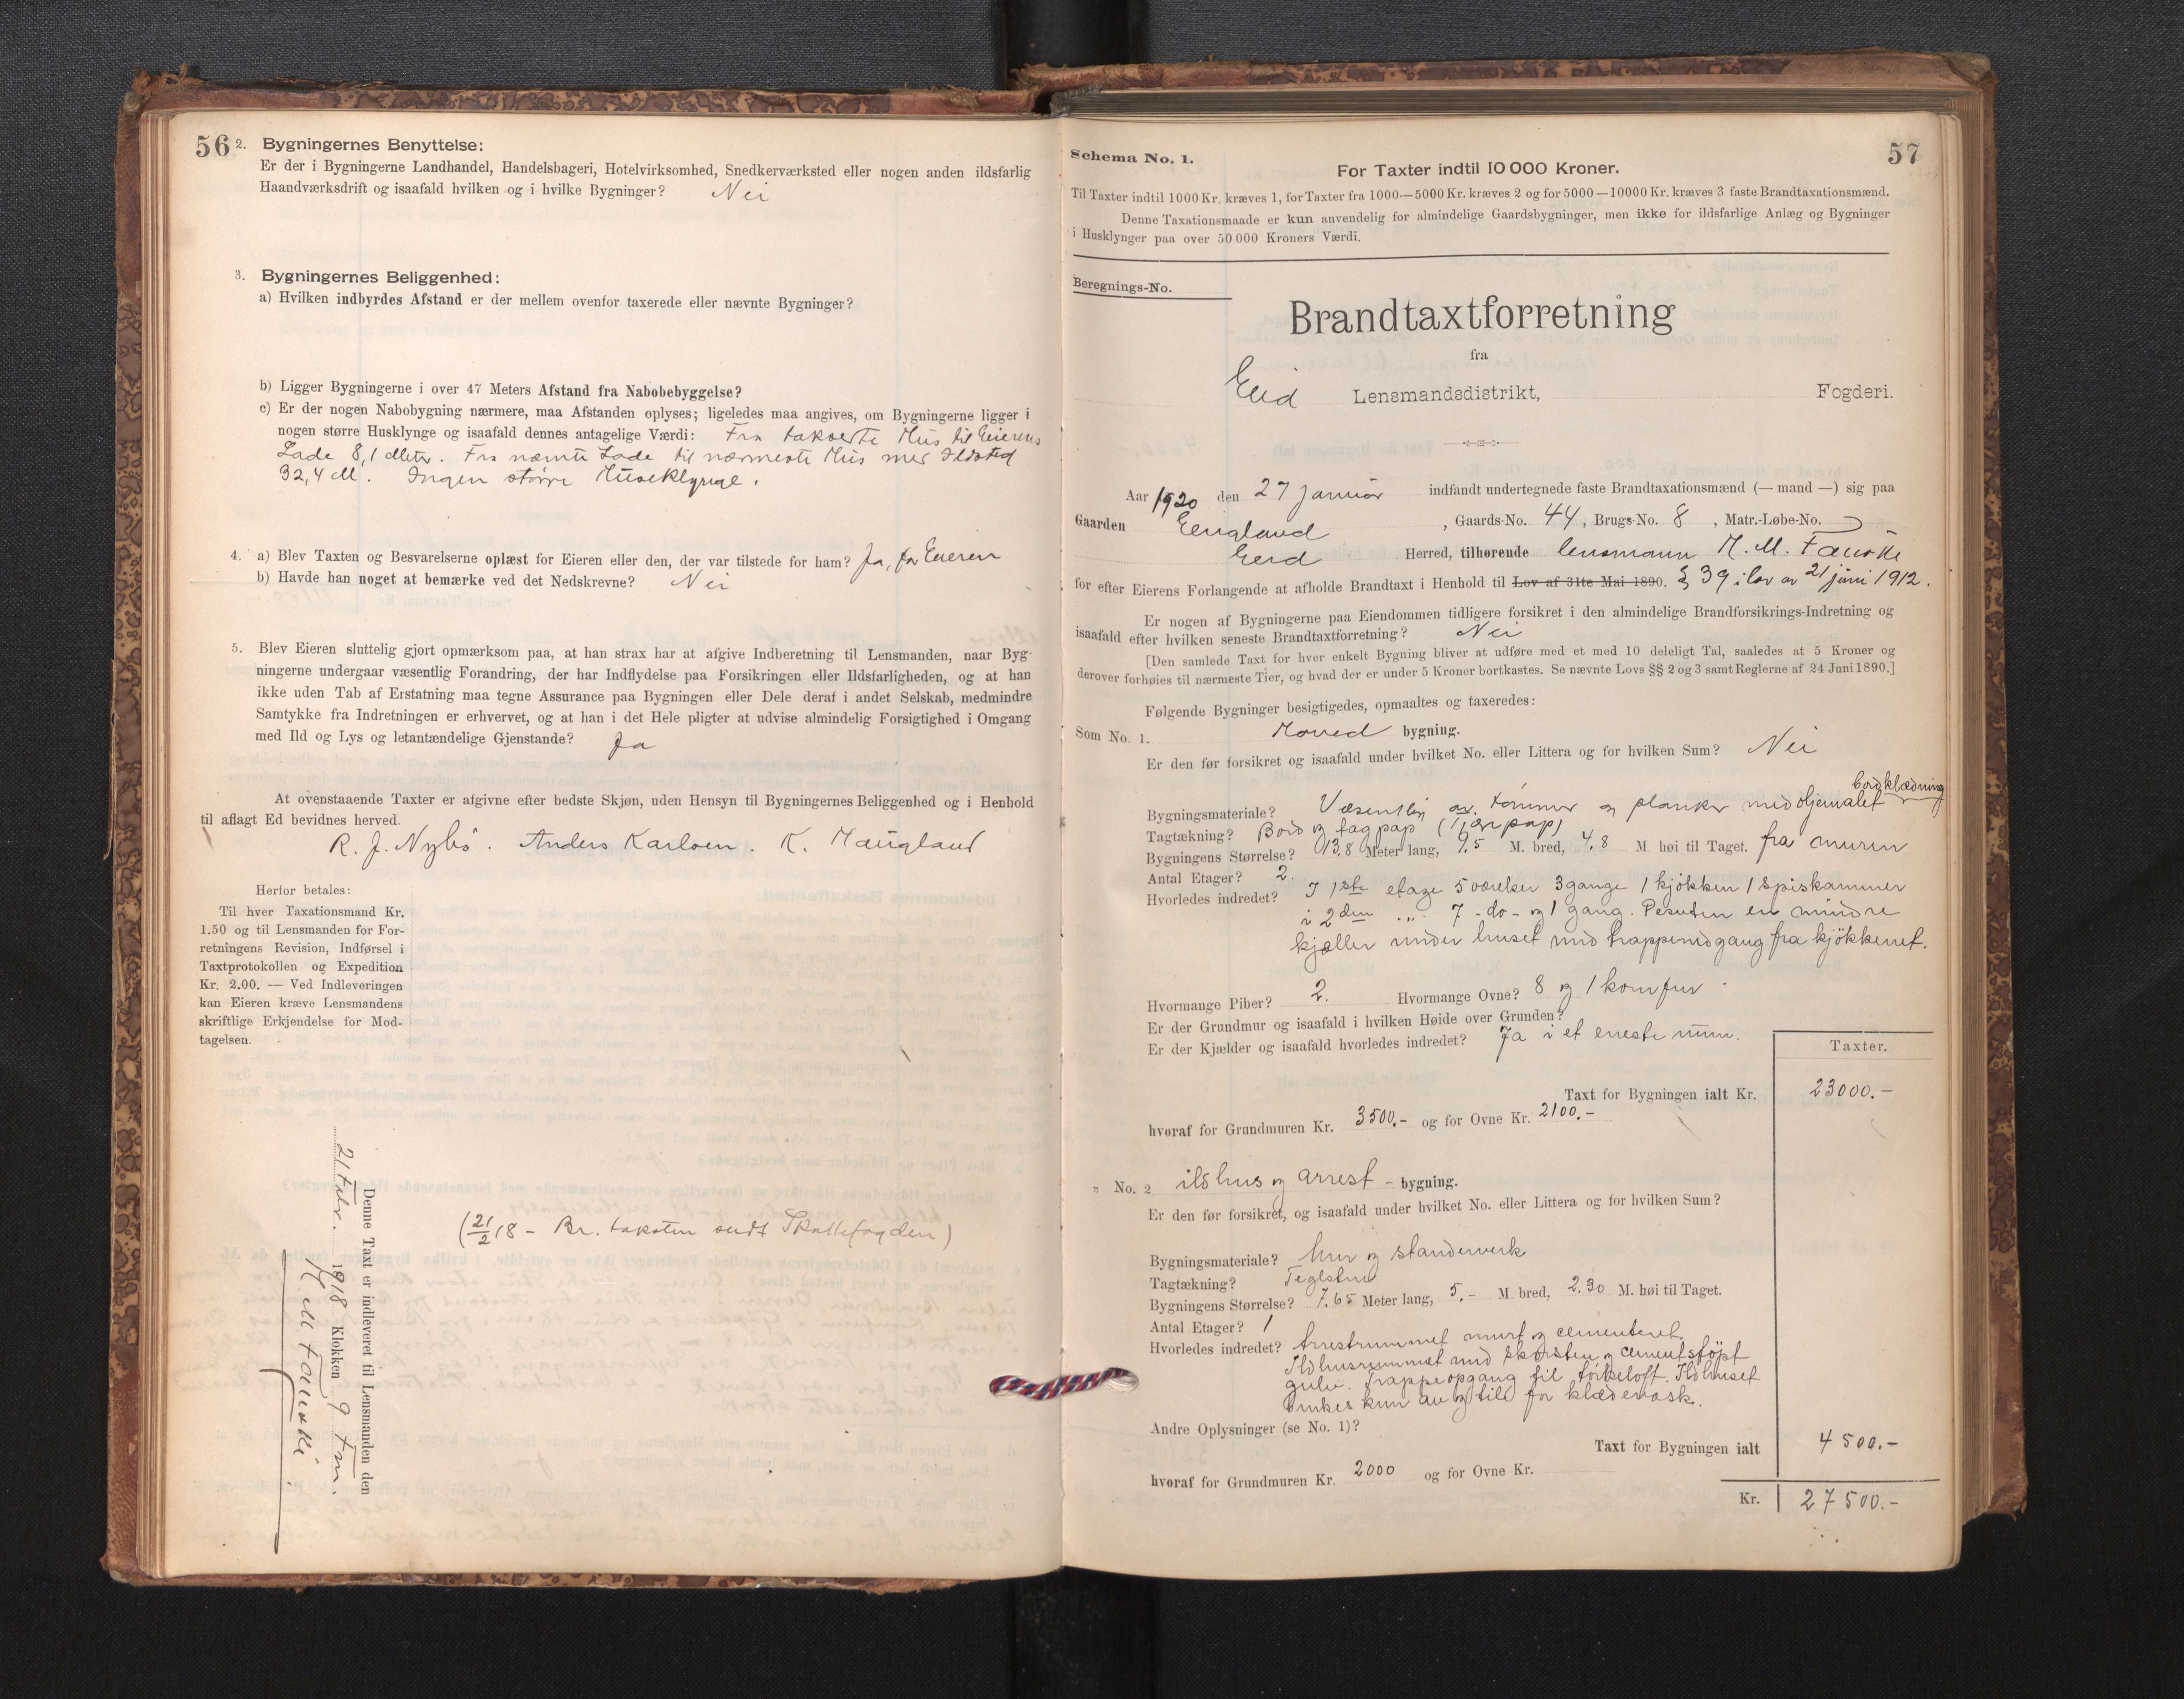 56
2. Bygningernes Benyttelse:
Er der i Bygningerne Landhandel, Handelsbageri, Hotelvirksomhed, Snedkerværksted eller nogen anden ildsfarlig
Haandværksdrift og isaafald hvilken og i hvilke Bygninger? Nei
3. Bygningernes Beliggenhed:
a) Hvilken indbyrdes Afstand er der mellem ovenfor taxerede eller nævnte Bygninger?
b) Ligger Bygningerne i over 47 Meters Afstand fra Nabobebyggelse?
c) Er der nogen Nabobygning nærmere, maa Afstanden oplyses; ligeledes maa angives, om Bygningerne ligger i
nogen større Husklynge og isaafald dennes antagelige Værdi: Fra takserte Hus til Eierens
Lade 8,1 Meter. Fra nævnte Lade til nærmeste Hus med Ildsted
32,4 M. Ingen større Huseklynge.
4. a) Blev Taxten og Besvarelserne oplæst for Eieren eller den, der var tilstede for ham? Ja, for Eieren
b) Havde han noget at bemærke ved det Nedskrevne? Nei
5. Blev Eieren sluttelig gjort opmærksom paa, at han strax har at afgive Indberetning til Lensmanden, naar Byg-
ningerne undergaar væsentlig Forandring, der har Indflydelse paa Forsikringen eller Ildsfarligheden, og at han
ikke uden Tab af Erstatning maa tegne Assurance paa Bygningen eller Dele deraf i andet Selskab, medmindre
Samtykke fra Indretningen er erhvervet, og at han i det Hele pligter at udvise almindelig Forsigtighed i Omgang
med Ild og Lys og letantændelige Gjenstande? Ja
At ovenstaaende Taxter er afgivne efter bedste Skjøn, uden Hensyn til Bygningernes Beliggenhed og i Henhold
til aflagt Ed bevidnes herved.
R. J. Nybö. Anders Karlsen. K. Haugland
Herfor betales:
Til hver Taxationsmand Kr.
1.50 og til Lensmanden for For-
retningens Revision, Indførsel i
Taxtprotokollen og Expedition
Kr. 2.00. — Ved Indleveringen
kan Eieren kræve Lensmandens
skriftlige Erkjendelse for Mod-
tagelsen.
Denne Taxt er indleveret til Lensmanden den
21 Febr. 1918 Klokken 9 Fm.
M Fauske
(21/2 18 - Br. taksten sendt Skattefogden)
57
Schema No. 1.
For Taxter indtil 10 000 Kroner.
Til Taxter indtil 1000 Kr. kræves 1, for Taxter fra 1000—5000 Kr. kræves 2 og for 5000—10000 Kr. kræves 3 faste Brandtaxationsmænd.
Denne Taxationsmaade er kun anvendelig for almindelige Gaardsbygninger, men ikke for ildsfarlige Anlæg og Bygninger
i Husklynger paa over 50 000 Kroners Værdi.
Beregnings-No.
Brandtaxtforretning
fra
Eid Lensmandsdistrikt, Fogderi.
Aar 1920 den 27 januar indfandt undertegnede faste Brandtaxationsmænd (— mand —) sig paa
Gaarden Eengland, Gaards-No. 44, Brugs-No. 8, Matr.-Løbe-No.
Eid Herred, tilhørende lensmann M. M. Fauske
for efter Eierens Forlangende at afholde Brandtaxt i Henhold til Lov af 31te Mai 1890. § 39 i lov av 21 juni 1912.
Er nogen af Bygningerne paa Eiendommen tidligere forsikret i den almindelige Brandforsikrings-Indretning og
isaafald efter hvilken seneste Brandtaxtforretning? Nei
[Den samlede Taxt for hver enkelt Bygning bliver at udføre med et med 10 deleligt Tal, saaledes at 5 Kroner og
derover forhøies til nærmeste Tier, og hvad der er under 5 Kroner bortkastes. Se nævnte Lovs §§ 2 og 3 samt Reglerne af 24 Juni 1890.]
Følgende Bygninger besigtigedes, opmaaltes og taxeredes:
Som No. 1. Hoved bygning.
Er den før forsikret og isaafald under hvilket No. eller Littera og for hvilken Sum? Nei
Bygningsmateriale? Væsentlig av tømmer og planker med oljemalet bordklædning
Tagtækning? Bord og tagpap (Tjærepap)
Bygningens Størrelse? 13,8 Meter lang, 9,5 M. bred, 4,8 M. høi til Taget. fra muren
Antal Etager? 2.
Hvorledes indredet? I 1ste etage 5 værelser 3 gange 1 kjøkken 1 spiskammer
i 2den „ 7 - do - og 1 gang. Desuten en mindre
kjæller under huset med trappenedgang fra kjøkkenet.
Hvormange Piber? 2. Hvormange Ovne? 8 og 1 komfur
Er der Grundmur og isaafald i hvilken Høide over Grunden?
Er der Kjælder og isaafald hvorledes indredet? Ja i et eneste rum.
Taxter.
Taxt for Bygningen ialt Kr. 23000.-
hvoraf for Grundmuren Kr. 3500.- og for Ovne Kr. 2100.-
" No. 2 ildhus og arrest - bygning.
Er den før forsikret, og isaafald under hvilket No. eller Littera og for hvilken Sum?
Bygningsmateriale? Mur og standerverk
Tagtækning? Teglsten
Bygningens Størrelse? 7.65 Meter lang, 5.- M. bred, 2.30 M. høi til Taget.
Antal Etager? 1
Hvorledes indredet? Arrestrummet murt og cementeret.
Ildhusrummet med skorsten og cementstøpt
gulv. Trappeopgang til tørkeloft. Ildhuset
brukes kun av og til for klædevask.
Andre Oplysninger (se No. 1)?
Taxt for Bygningen ialt 4500.-
hvoraf for Grundmuren Kr. 2000 og for Ovne Kr.
Kr. 27500.-